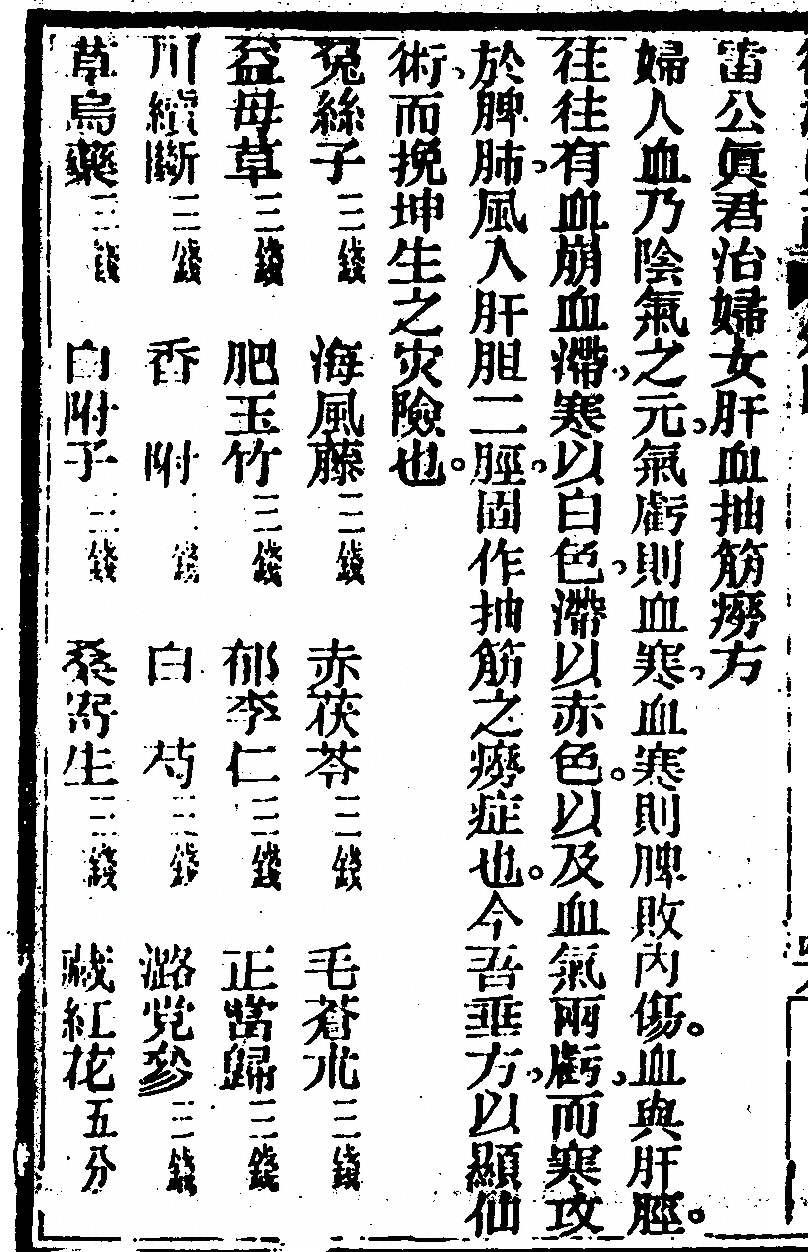 雷公眞君治婦女肝血抽筋癆方
婦人血乃陰氣之元、氣虧則血寒、血寒則脾敗內傷。血與肝脛。
往往有血崩血滯、寒以白色、滯以赤色。以及血氣兩虧、而寒攻
於脾肺、風入肝胆二脛、固作抽筋之癆症也。今吾垂方、以顯仙
術、而挽坤生之灾險也。
兔絲子三錢 海風藤三錢 赤茯苓三錢 毛蒼朮三錢
益母草三錢 肥玉竹三錢 郁李仁三錢 正當歸三錢
川續斷三錢 香附 錢 白芍三錢 潞党參三錢
草烏藥三錢 白附子三錢 桑寄生三錢 藏紅花五分